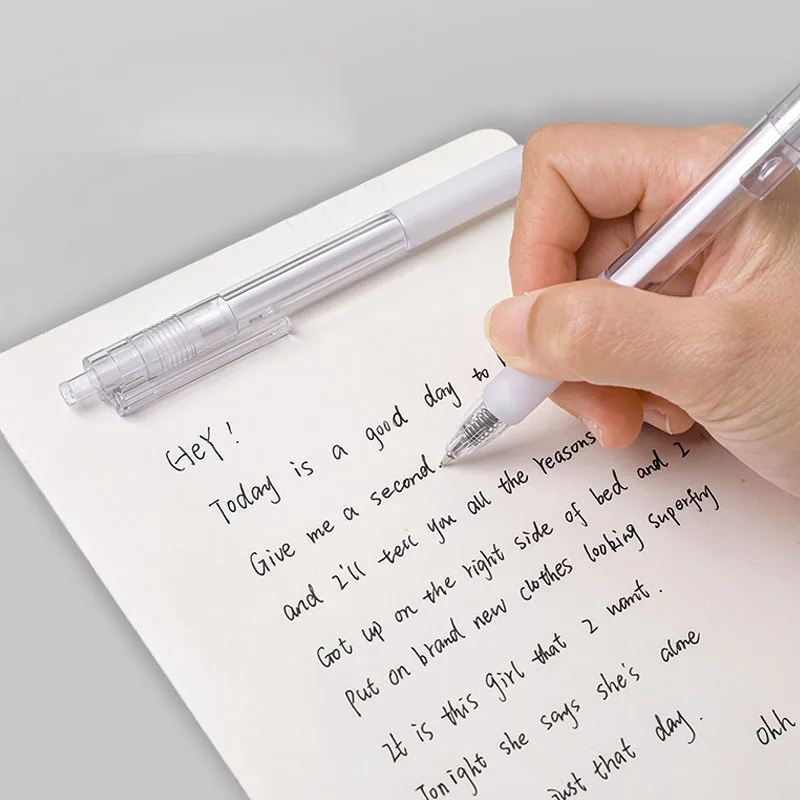 HeY!
Today is a good day to
Give me a second
and I'll tell you all the reasons
Got up on the right side of bed and I
put on brand new clothes looking superfly
It is this girl that I want.
Tonight she says she's alone
just that day.
ohh